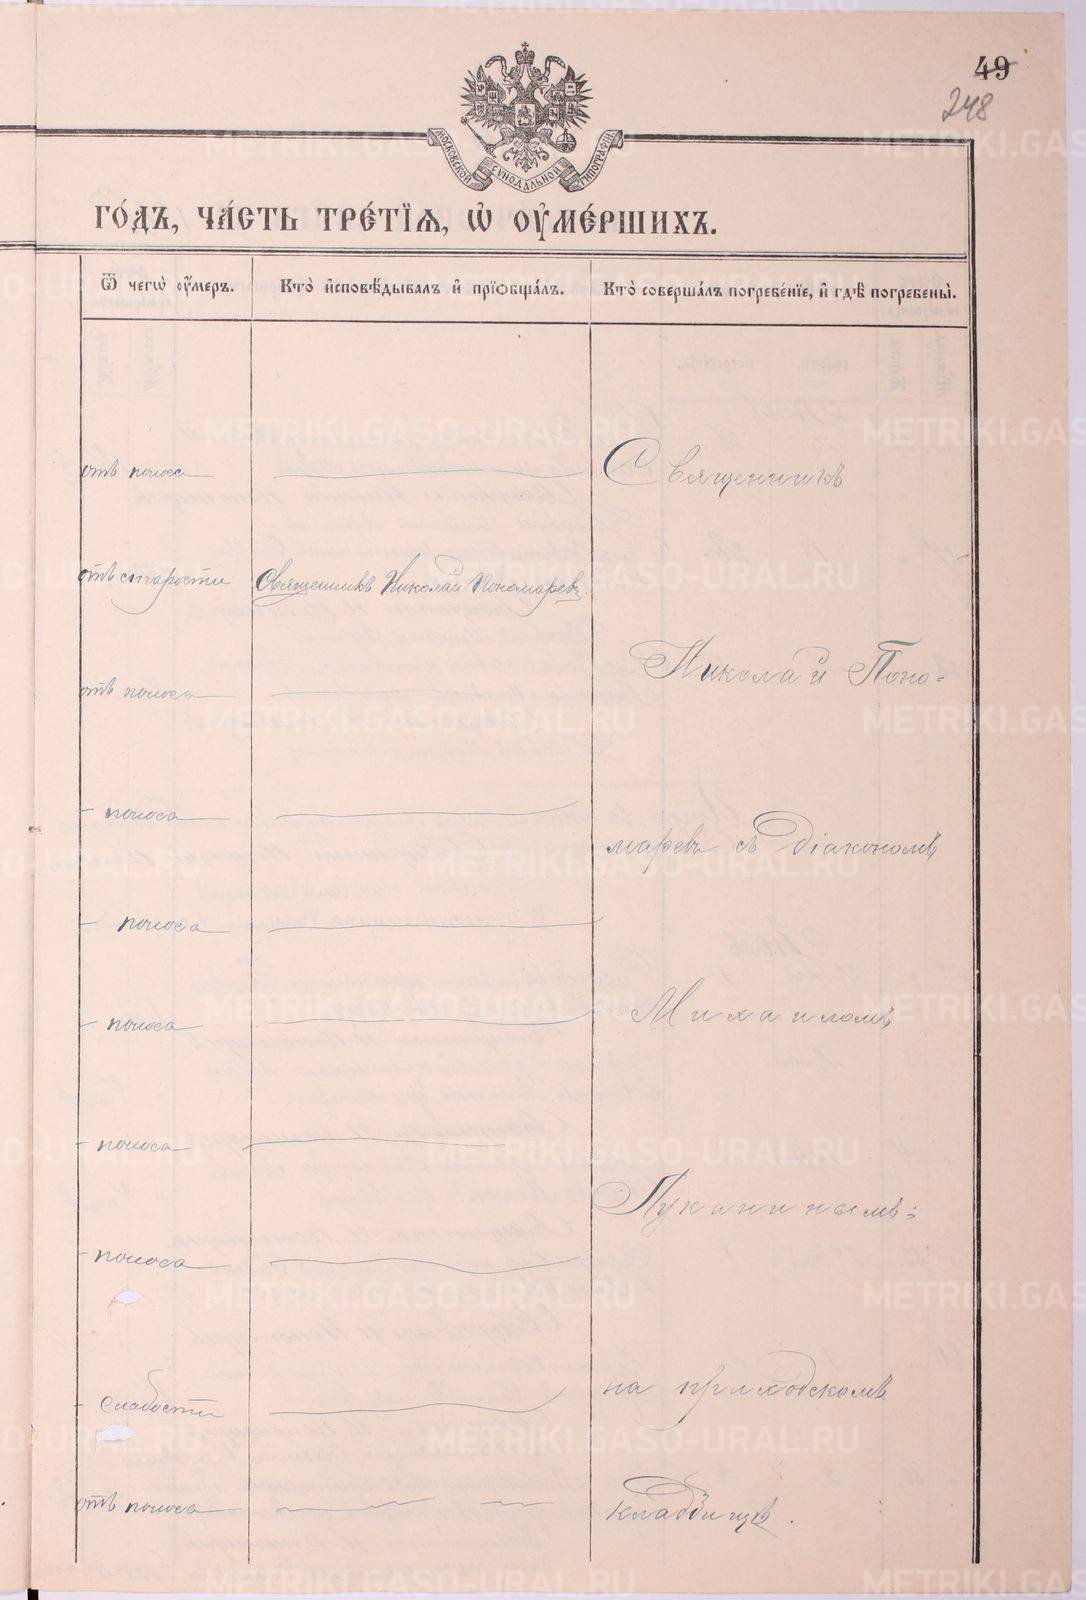 49
248
МОСКОВСКОЙ СѴНОДАЛЬНОЙ ТИПОГРАФІИ
ГО́ДЪ, ЧА́СТЬ ТРЕ́ТЇѦ, Ѡ҆ ОУ҆МЕ́РШИХЪ.
Ѿ чегѡ̀ оу҆́меръ.
Кто̀ и҆сповѣ́дывалъ и҆ прїѻбща́лъ.
Кто̀ соверша́лъ погребе́нїе, и҆ гдѣ̀ погребены̀.
отъ поноса
Священникъ
отъ старости
Священникъ Николай Пономаревъ
Николай Поно=
отъ поноса
- поноса
маревъ съ діакономъ
- поноса
- поноса
Михаиломъ
- поноса
Луканинымъ:
- поноса
- слабости
на приходскомъ
отъ поноса
кладбищѣ.
METRIKI.GASO-URAL.RU